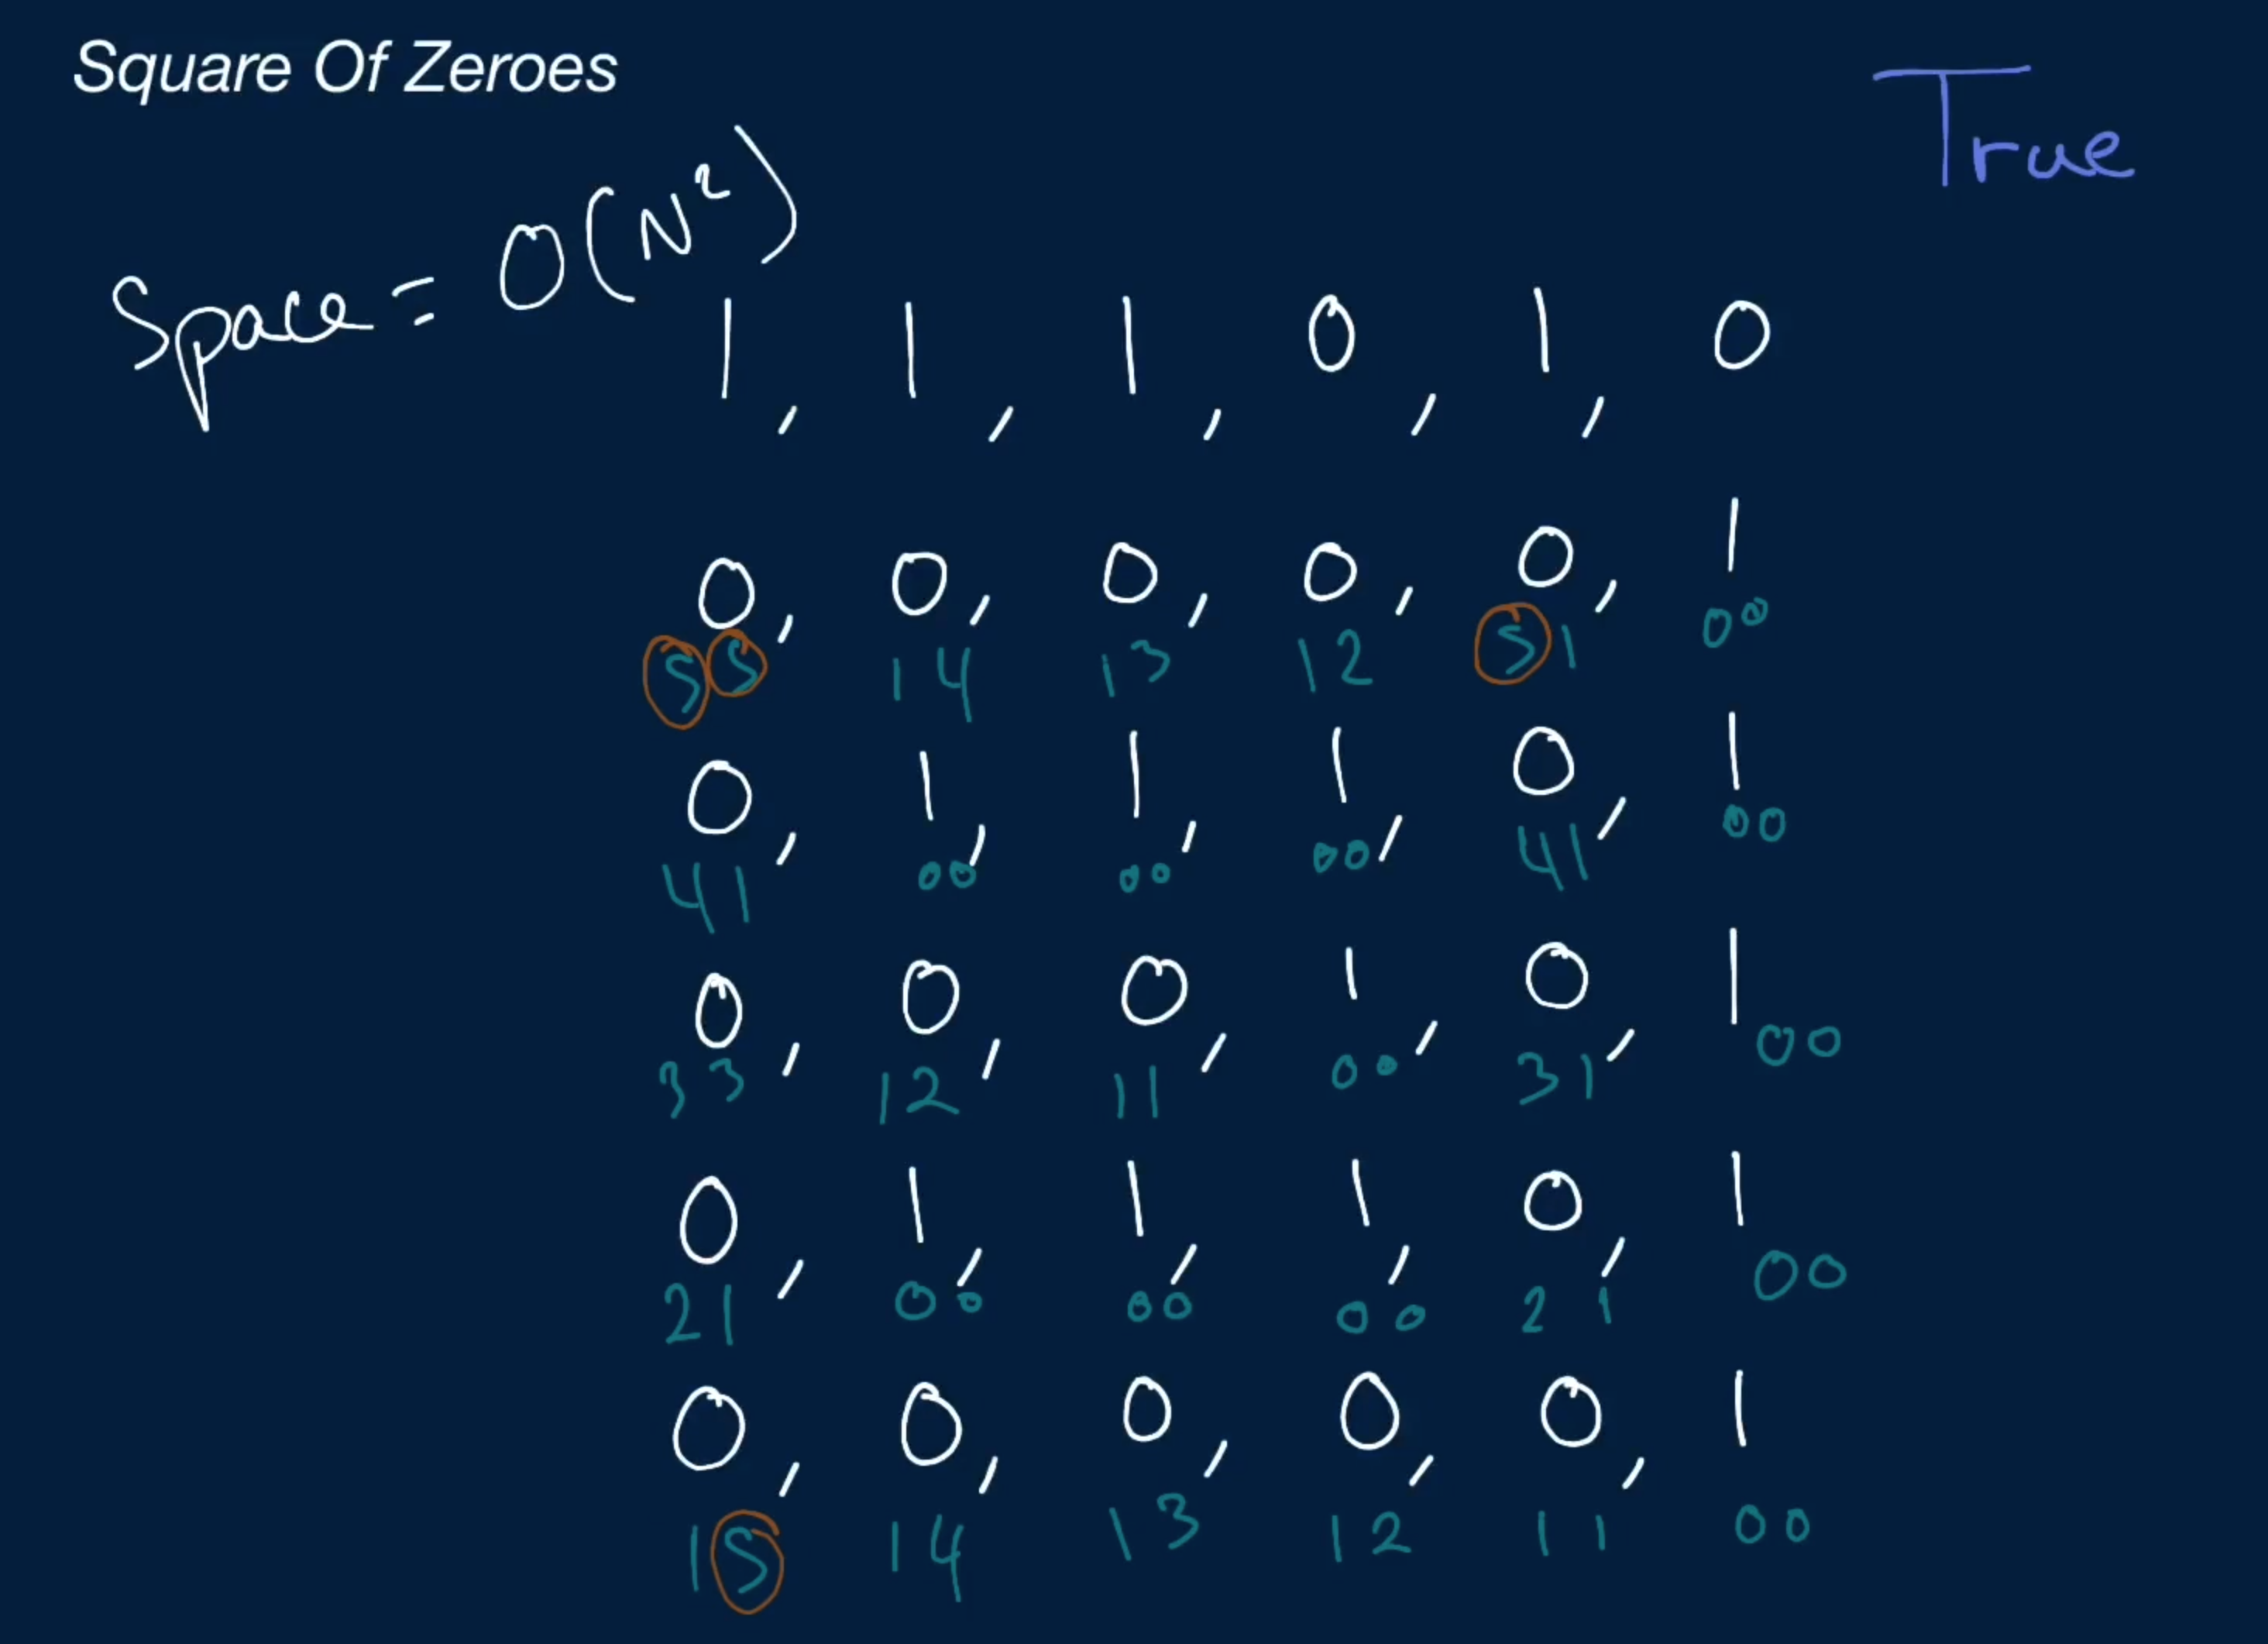 Square Of Zeroes
True
Space = O(N²)
1, 1, 1, 0, 1, 0
0, 0, 0, 0, 0, 1
55 14 13 12 51 00
0, 1, 1, 1, 0, 1
41 00 00 00 41 00
0, 0, 0, 1, 0, 1
33 12 11 00 31 00
0, 1, 1, 1, 0, 1
21 00 00 00 21 00
0, 0, 0, 0, 0, 1
15 14 13 12 11 00